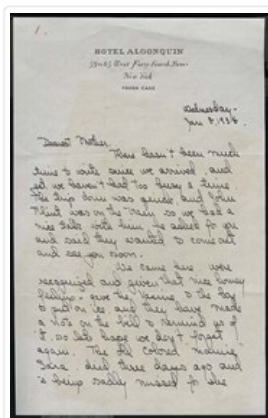 1.
HOTEL ALGONQUIN
59 to 65 West Forty-Fourth Street
New York
FRANK CASE
Wednesday -
Jan 5, 1938
Dearest Mother,
There hasn't been much
time to write since we arrived, and
yet we haven't had too busy a time.
The trip down was quick, and John
Flint was on the train so we had a
nice talk with him. He asked for you
and said they wanted to come out
and see you soon.
We came here, were
recognized and given that nice homey
feeling - gave the to the boy
to put on ice, and they have made
a note on the bill to remind us of
it, so let's hope we don't forget
again. The old colored
died three days ago and
is being sadly missed for she